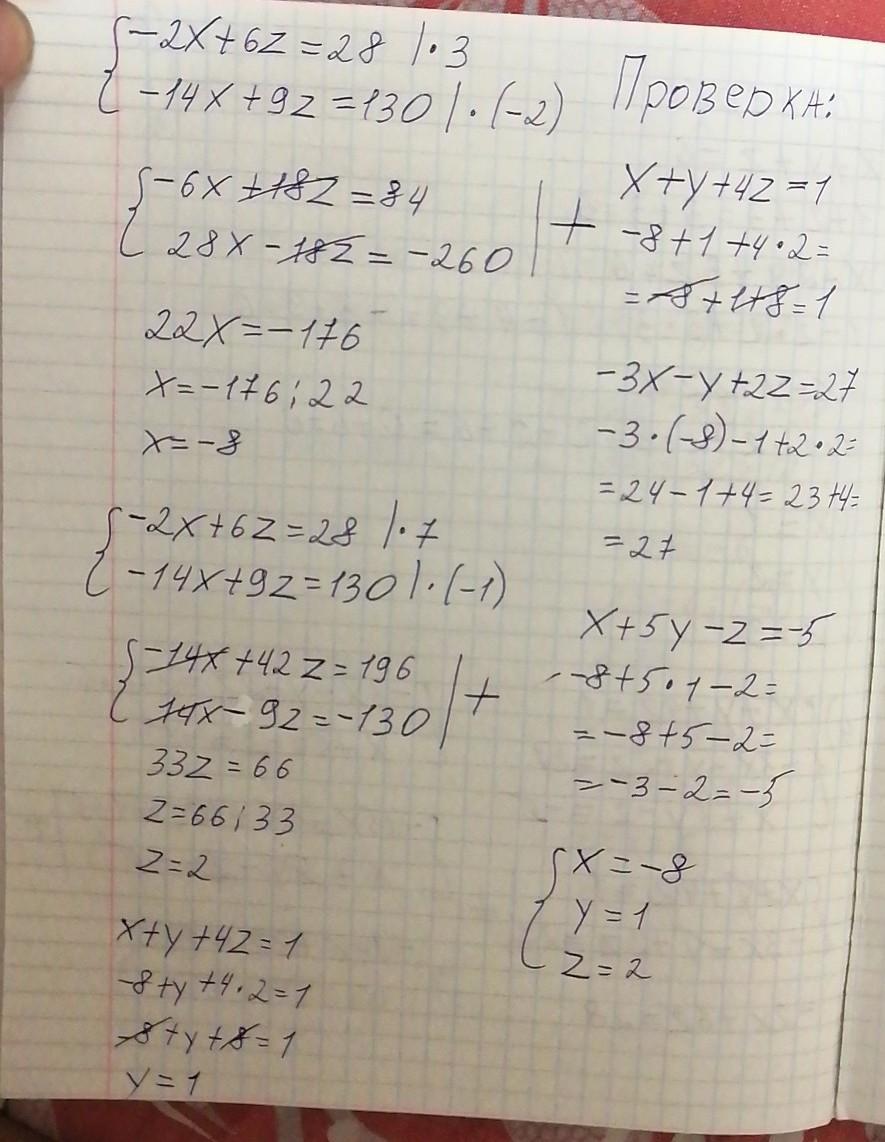 {-2x+6z=28 |·3
-14x+9z=130 |·(-2)
{-6x+18z=84
28x-18z=-260 | +
22x=-176
x=-176:22
x=-8
{-2x+6z=28 |·7
-14x+9z=130 |·(-1)
{-14x+42z=196
14x-9z=-130 | +
33z=66
z=66:33
z=2
x+y+4z=1
-8+y+4·2=1
-8+y+8=1
y=1
Проверка:
x+y+4z=1
-8+1+4·2=
=-8+1+8=1
-3x-y+2z=27
-3·(-8)-1+2·2=
=24-1+4=23+4=
=27
x+5y-z=-5
-8+5·1-2=
=-8+5-2=
=-3-2=-5
{x=-8
y=1
z=2